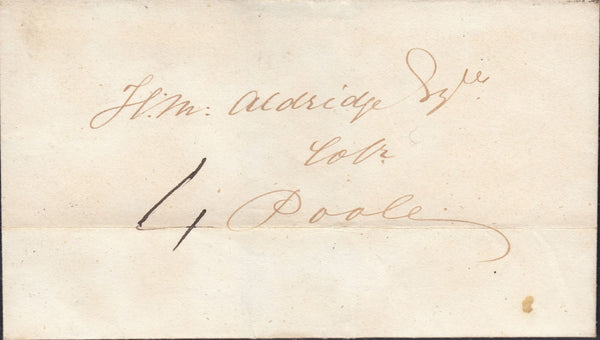 H. M. Aldridge Esqre
Solr
4 Poole